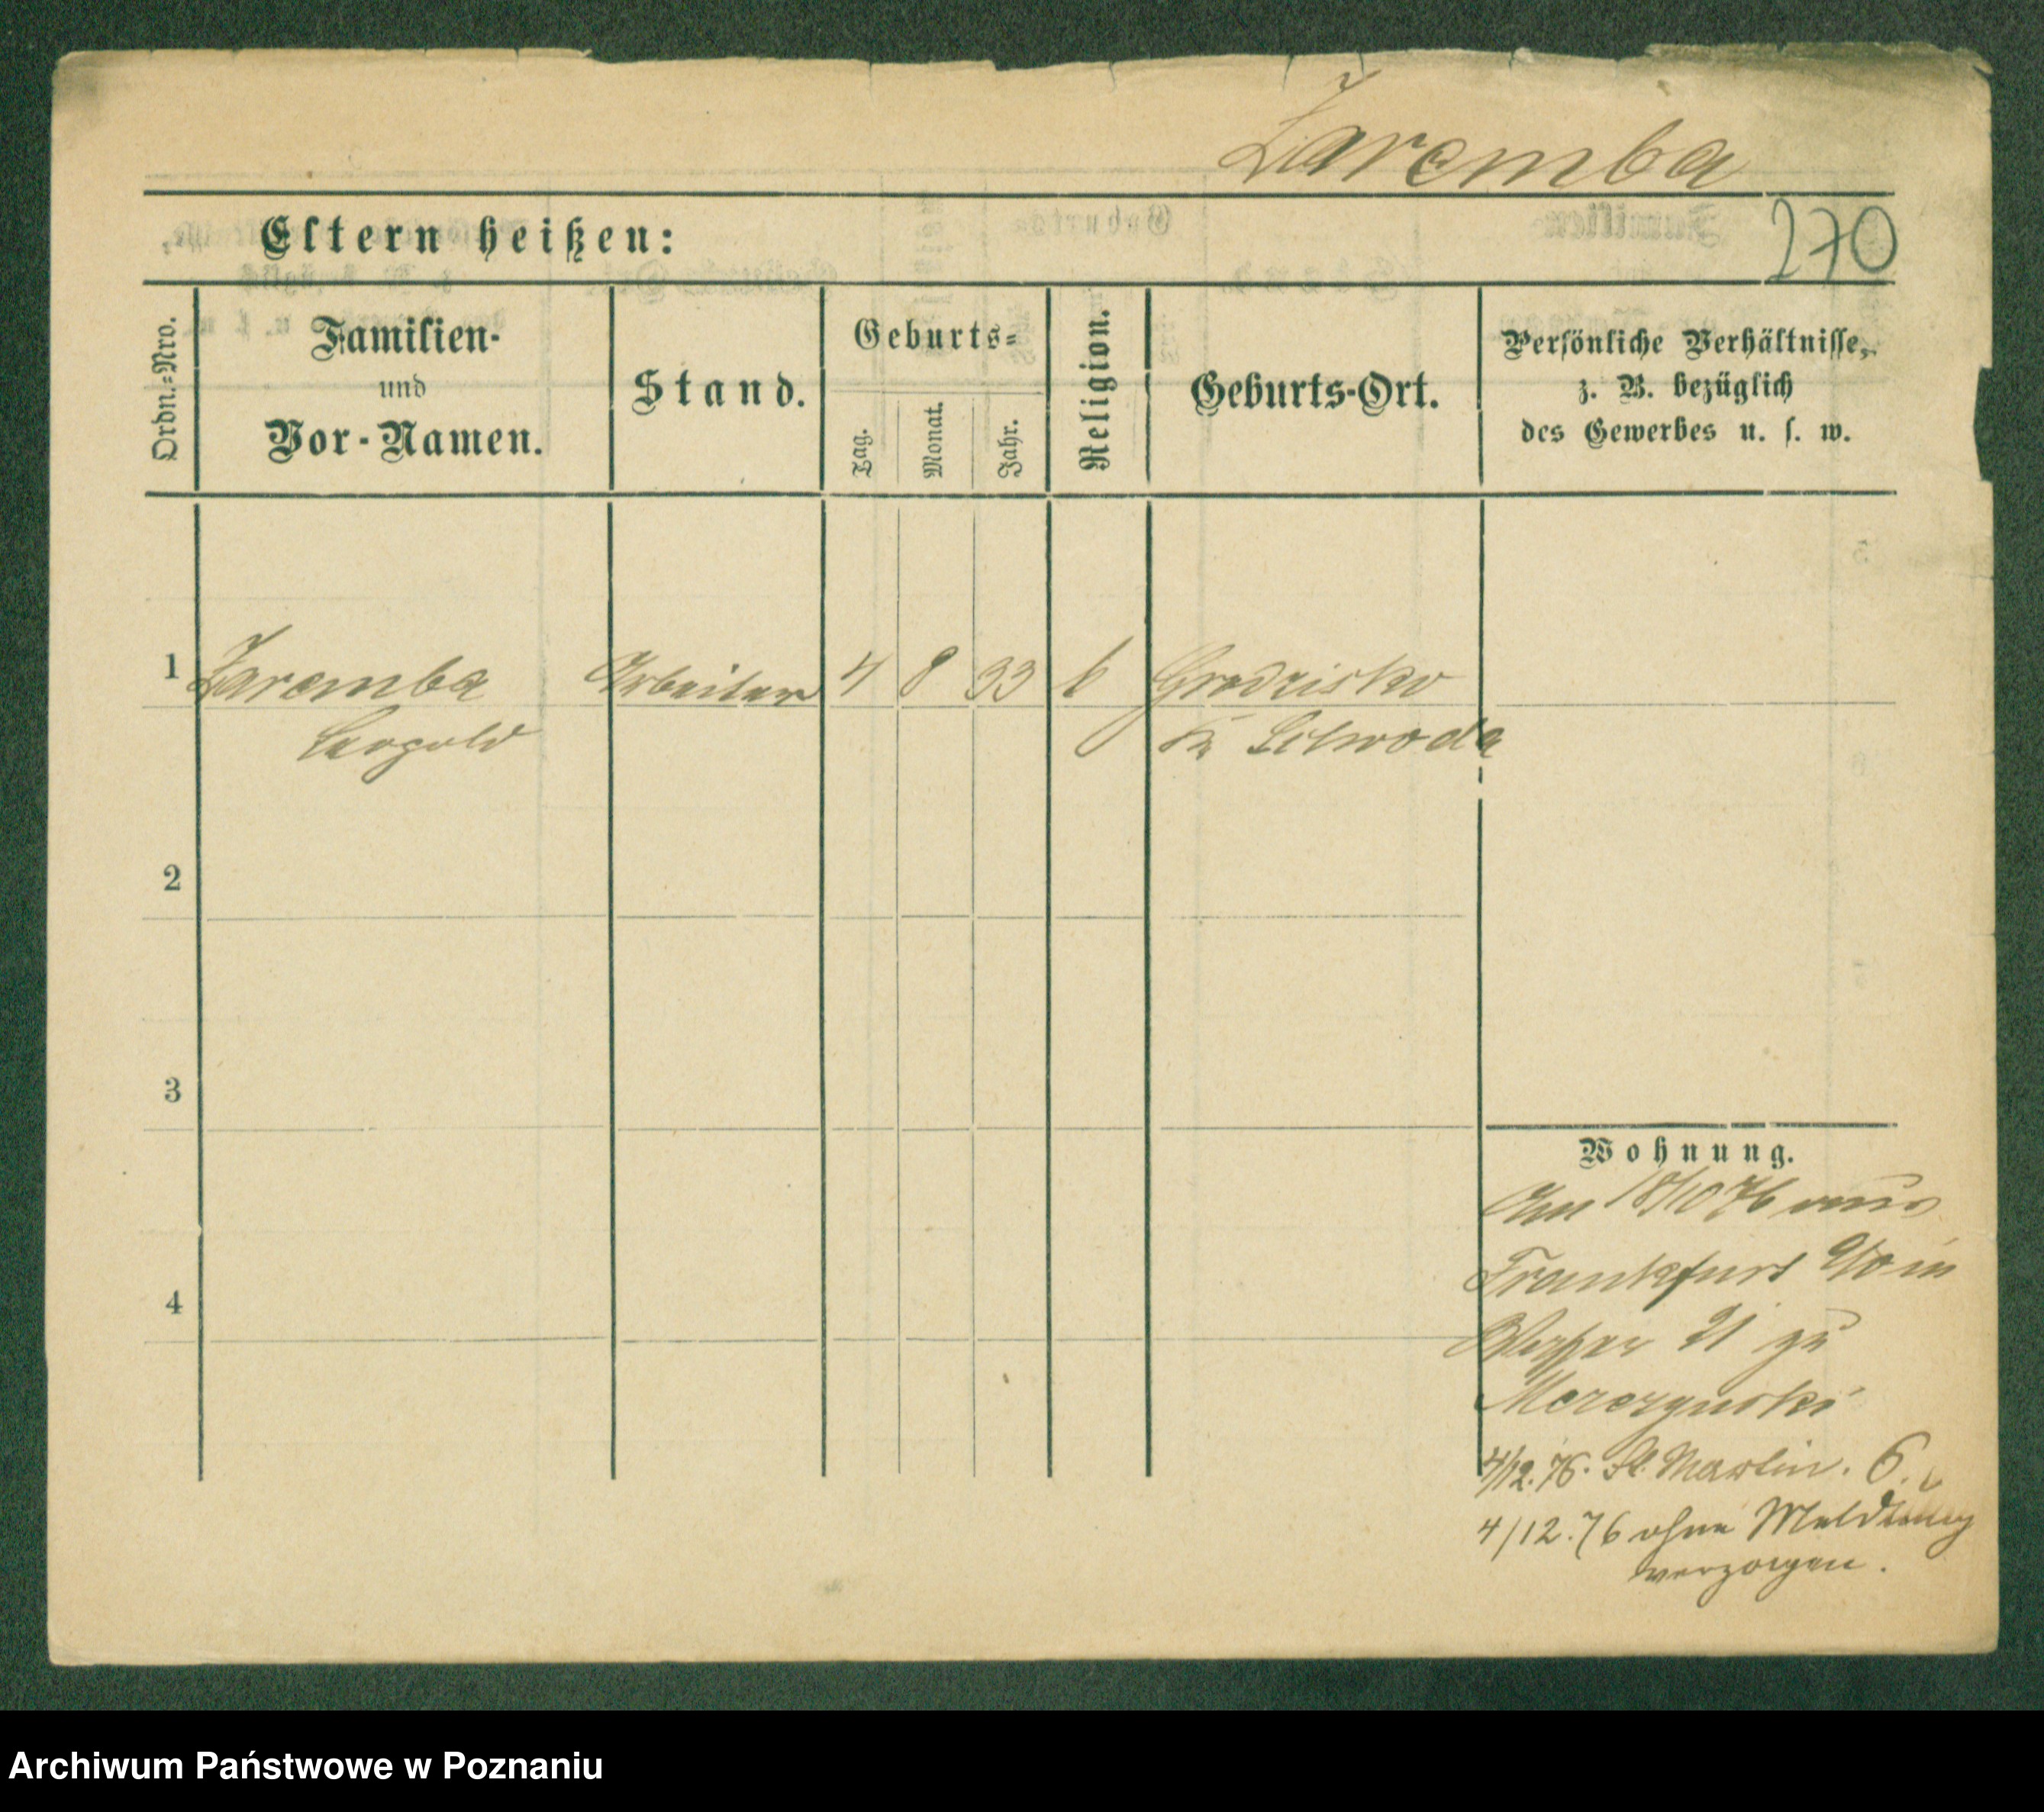 Zaremba
270
Eltern heißen:
Ordn.=Nro.
Familien-
und
Vor-Namen.
Stand.
Geburts=
Tag.
Monat.
Jahr.
Religion.
Geburts-Ort.
Persönliche Verhältnisse,
z. B. bezüglich
des Gewerbes u. s. w.
1 Zaremba Arbeiter 4 8 33 Grodzisko
Leopold
2
3
4
Wohnung.
18/10 76 aus
Frankfurt
21 zu
4/12.76. St. Martin. 6.
4/12.76 ohne Meldung
verzogen.
Archiwum Państwowe w Poznaniu